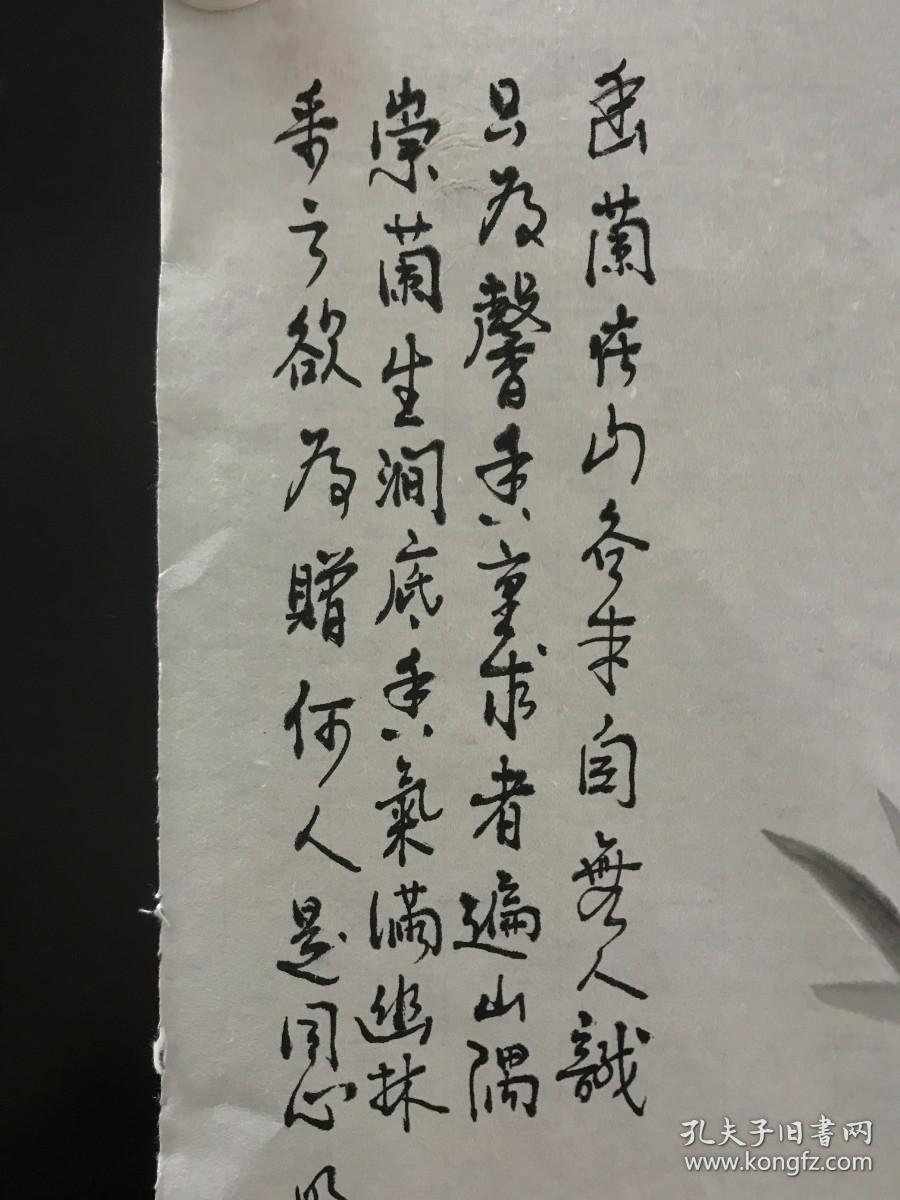 幽蘭在山谷本自無人識
只為馨香重求者遍山隅
崇蘭生澗底香氣滿幽林
采之欲為贈何人是同心
孔夫子旧書网
www.kongfz.com